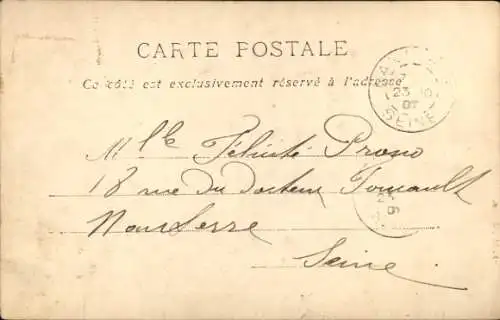 CARTE POSTALE
Ce côté est exclusivement réservé à l'adresse
23
07
SEINE
Mlle Félicité Prono
18 rue du Docteur Foucault
Nanterre
Seine